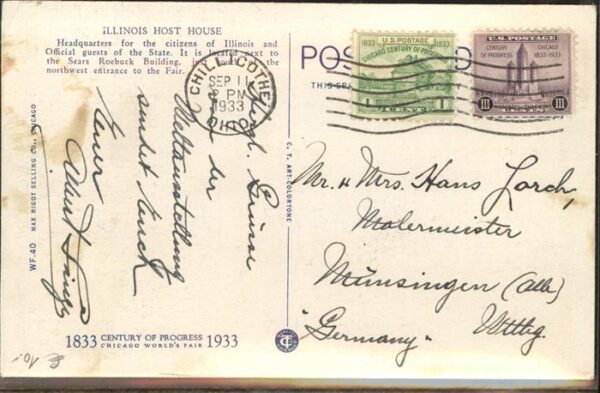 ILLINOIS HOST HOUSE
Headquarters for the citizens of Illinois and
Official guests of the State. It is located next to
the Sears Roebuck Building, just
northwest entrance to the Fair.
POST
THIS
CHILLICOTHE
SEP 11
PM
1933
OHIO
U.S. POSTAGE
1833 1933
CHICAGO CENTURY OF PROGRESS
1 CENT 1
U.S. POSTAGE
CENTURY OF PROGRESS
CHICAGO 1833-1933
III III
Herzl. Grüsse
von der
Weltausstellung
sendet Euch
Euer
Albert
Mr. u Mrs. Hans Lorch,
Malermeister
Münsingen (Alb)
"Germany" Wttbg
WF-40 MAX RIGOT SELLING CO., CHICAGO
C. T. ART-COLORTONE
1833 CENTURY OF PROGRESS 1933
CHICAGO WORLD'S FAIR